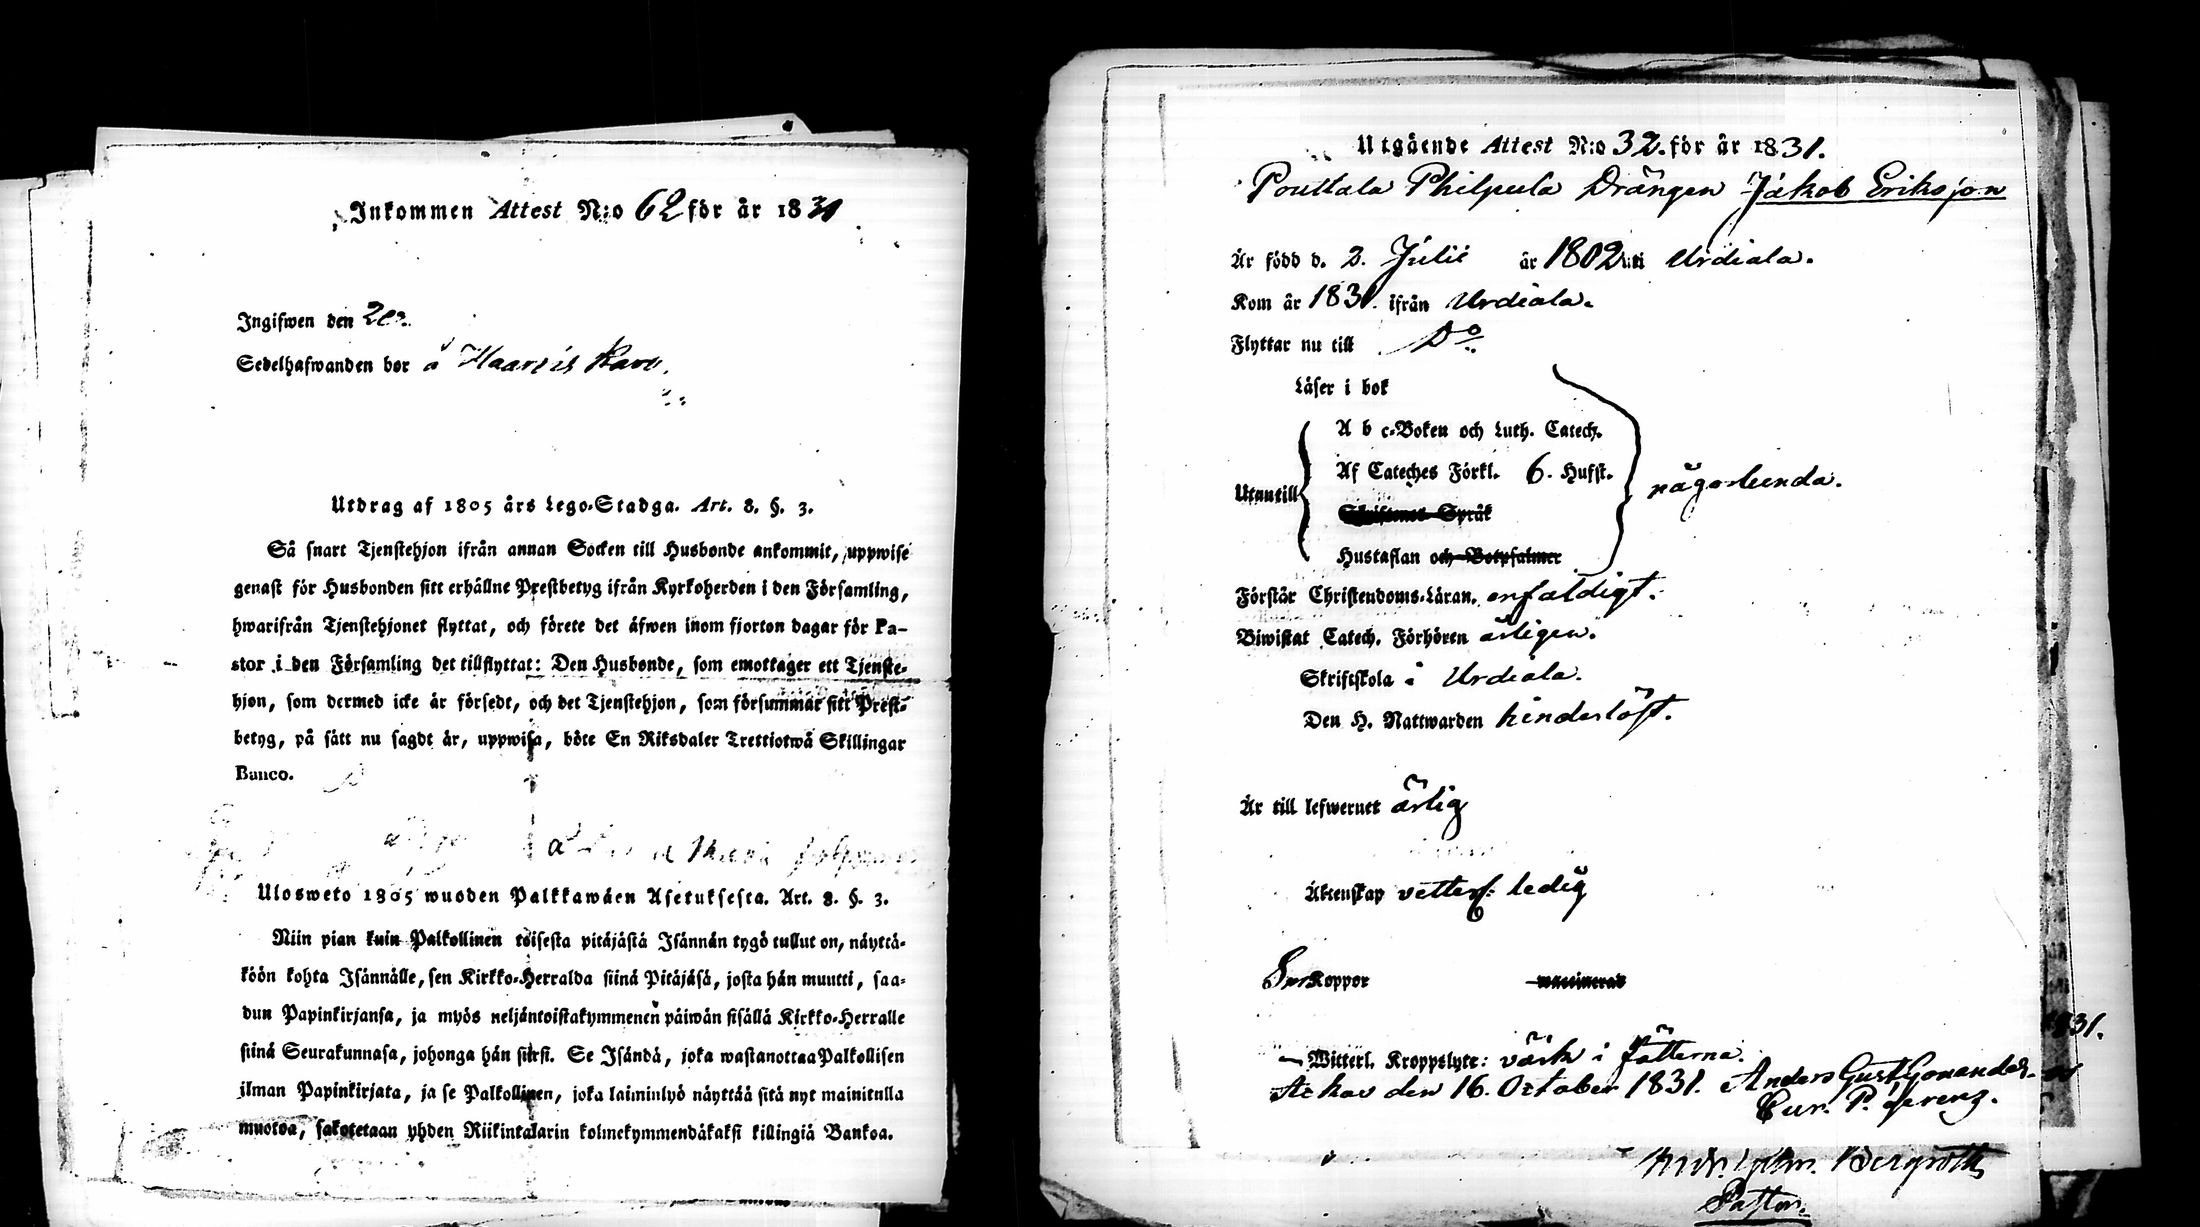 Inkommen Attest N:o 62 för år 1831
Ingifwen den
Sedelhafwanden bor å
Utdrag af 1805 års Lego-Stadga. Art. 8. §. 3.
Så snart Tjenstehjon ifrån annan Socken till Husbonde ankommit, uppwise
genast för Husbonden sitt erhållne Prestbetyg ifrån Kyrkoherden i den Församling,
hwarifrån Tjenstehjonet flyttat, och förete det äfwen inom fjorton dagar för Pa-
stor i den Församling det tillflyttat: Den Husbonde, som emottager ett Tjenste-
hjon, som dermed icke är försedt, och det Tjenstehjon, som försummar sitt Prest-
betyg, på sätt nu sagdt är, uppwisa, böte En Riksdaler Trettiotwå Skillingar
Banco.
Ulosweto 1805 wuoden Palkkawäen Asetuksesta. Art. 8. §. 3.
Niin pian kuin Palkollinen toisesta pitäjästä Isännän tygö tullut on, näyttä-
köön kohta Isännälle, sen Kirkko-Herralda siinä Pitäjäsä, josta hän muutti, saa-
dun Papinkirjansa, ja myös neljäntoistakymmenen päiwän sisällä Kirkko-Herralle
siinä Seurakunnasa, johonga hän siirsi. Se Isändä, joka wastanottaa Palkollisen
ilman Papinkirjata, ja se Palkollinen, joka laiminlyö näyttää sitä nyt mainitulla
muotoa, sakotetaan yhden Riikintalarin kolmekymmendäkaksi killingiä Bankoa.
Utgående Attest N:o 32. för år 1831.
Pouttala Philpula Drängen Jakob Eriksson
Är född d. 2. Julii år 1802 uti Urdiala.
Kom år 1831. ifrån Urdiala.
Flyttar nu till Do
Läser i bok
A b c-Boken och Luth. Catech.
Af Cateches Förkl. 6. Hufst.
Utantill någorlunda.
Skriftenes Språk
Hustaflan och Botpsalmer
Förstår Christendoms-Läran. enfaldigt.
Biwistat Catech. Förhören årligen.
Skriftskola i Urdiala.
Den H. Nattwarden hinderlöst.
Är till lefwernet ärlig
Äktenskap vetterl: ledig
Koppor vaccinerad
Witterl. Kroppslyte: värk i fötterna.
den 16. October 1831. Anders Gust
1831.
Bergroth
Pastor.